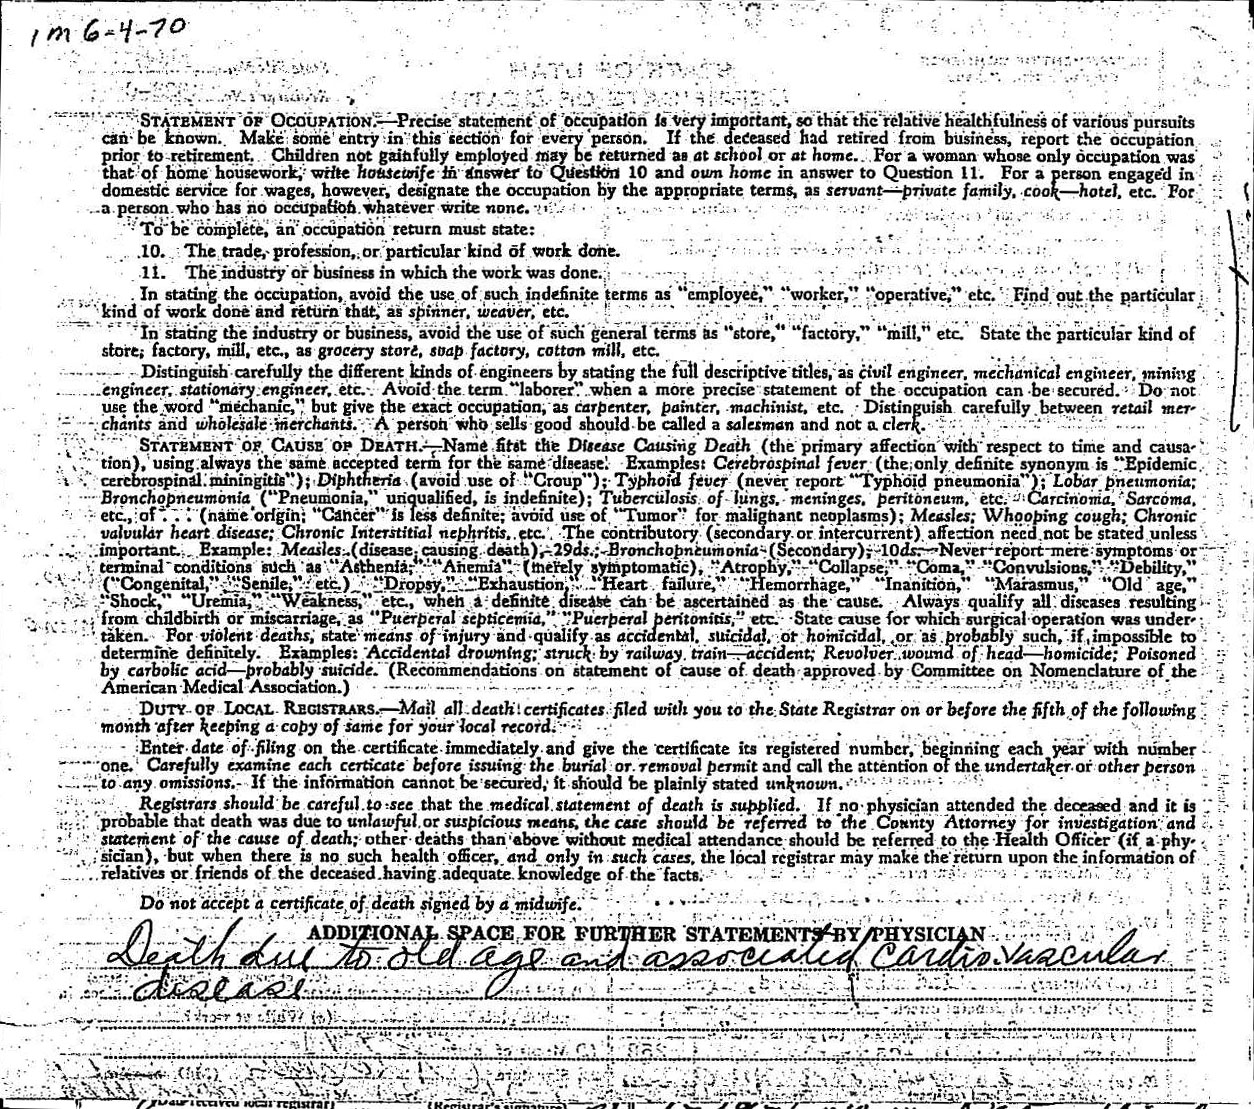 1 m 6-4-70
STATEMENT OF OCCUPATION.—Precise statement of occupation is very important, so that the relative healthfulness of various pursuits
can be known. Make some entry in this section for every person. If the deceased had retired from business, report the occupation
prior to retirement. Children not gainfully employed may be returned as at school or at home. For a woman whose only occupation was
that of home housework, write housewife in answer to Question 10 and own home in answer to Question 11. For a person engaged in
domestic service for wages, however, designate the occupation by the appropriate terms, as servant—private family, cook—hotel, etc. For
a person who has no occupation whatever write none.
To be complete, an occupation return must state:
10. The trade, profession, or particular kind of work done.
11. The industry or business in which the work was done.
In stating the occupation, avoid the use of such indefinite terms as "employee," "worker," "operative," etc. Find out the particular
kind of work done and return that, as spinner, weaver, etc.
In stating the industry or business, avoid the use of such general terms as "store," "factory," "mill," etc. State the particular kind of
store, factory, mill, etc., as grocery store, soap factory, cotton mill, etc.
Distinguish carefully the different kinds of engineers by stating the full descriptive titles, as civil engineer, mechanical engineer, mining
engineer, stationary engineer, etc. Avoid the term "laborer" when a more precise statement of the occupation can be secured. Do not
use the word "mechanic," but give the exact occupation, as carpenter, painter, machinist, etc. Distinguish carefully between retail mer-
chants and wholesale merchants. A person who sells good should be called a salesman and not a clerk.
STATEMENT OF CAUSE OF DEATH.—Name first the Disease Causing Death (the primary affection with respect to time and causa-
tion), using always the same accepted term for the same disease. Examples: Cerebrospinal fever (the only definite synonym is "Epidemic
cerebrospinal miningitis"); Diphtheria (avoid use of "Croup"); Typhoid fever (never report "Typhoid pneumonia"); Lobar pneumonia;
Bronchopneumonia ("Pneumonia," unqualified, is indefinite); Tuberculosis of lungs, meninges, peritoneum, etc. Carcinoma, Sarcoma,
etc., of . . . (name origin; "Cancer" is less definite; avoid use of "Tumor" for malignant neoplasms); Measles; Whooping cough; Chronic
valvular heart disease; Chronic Interstitial nephritis, etc. The contributory (secondary or intercurrent) affection need not be stated unless
important. Example: Measles (disease causing death), 29ds.; Bronchopneumonia (Secondary), 10ds. Never report mere symptoms or
terminal conditions such as "Asthenia," "Anemia" (merely symptomatic), "Atrophy," "Collapse," "Coma," "Convulsions," "Debility,"
("Congenital," "Senile," etc.) "Dropsy," "Exhaustion," "Heart failure," "Hemorrhage," "Inanition," "Marasmus," "Old age,"
"Shock," "Uremia," "Weakness," etc., when a definite disease can be ascertained as the cause. Always qualify all diseases resulting
from childbirth or miscarriage, as "Puerperal septicemia," "Puerperal peritonitis," etc. State cause for which surgical operation was under-
taken. For violent deaths, state means of injury and qualify as accidental, suicidal, or homicidal, or as probably such, if impossible to
determine definitely. Examples: Accidental drowning; struck by railway train—accident; Revolver wound of head—homicide; Poisoned
by carbolic acid—probably suicide. (Recommendations on statement of cause of death approved by Committee on Nomenclature of the
American Medical Association.)
DUTY OF LOCAL REGISTRARS.—Mail all death certificates filed with you to the State Registrar on or before the fifth of the following
month after keeping a copy of same for your local record.
Enter date of filing on the certificate immediately and give the certificate its registered number, beginning each year with number
one. Carefully examine each certicate before issuing the burial or removal permit and call the attention of the undertaker or other person
to any omissions. If the information cannot be secured, it should be plainly stated unknown.
Registrars should be careful to see that the medical statement of death is supplied. If no physician attended the deceased and it is
probable that death was due to unlawful or suspicious means, the case should be referred to the County Attorney for investigation and
statement of the cause of death; other deaths than above without medical attendance should be referred to the Health Officer (if a phy-
sician), but when there is no such health officer, and only in such cases, the local registrar may make the return upon the information of
relatives or friends of the deceased having adequate knowledge of the facts.
Do not accept a certificate of death signed by a midwife.
ADDITIONAL SPACE FOR FURTHER STATEMENTS BY PHYSICIAN
Death due to old age and associated Cardio.vascular
disease